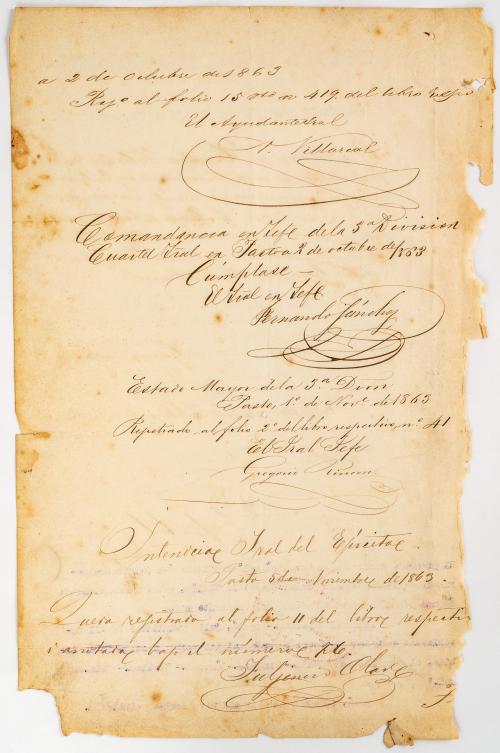 a 2 de Octubre de 1863
Rejo al folio 15 vto n 419 del libro respo
El Ayudante Jral
V. Villareal
Comandancia en Jefe de la 3ª Division
Cuartel Jral en Pasto a 2 de octubre de 1863
Cúmplase —
El Jral en Jefe
Fernando Sánchez
Estado Mayor de la 3.ª Divon
Pasto, 1º de Nove de 1863
Rejistrado al folio 2º del libro respectivo, nº 41
El Jral Jefe
Gregorio Rincon
Intencia Jral del Ejército
Pasto 5 de Noviembre de 1863.
Queda registrado al folio 11 del libro respectiv
i anotado bajo el número
Fulgencio Olar